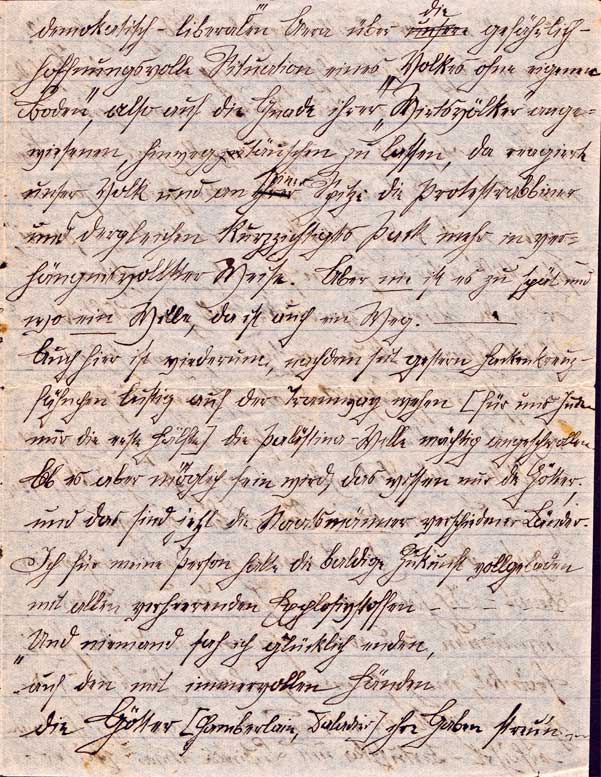 demokratisch-liberalen" Aera über die gefährlich-
hoffnungsvolle Situation eines "Volkes ohne eigenen
Boden", also auf die Gnade ihrer "Wirtsvölker" ange-
wiesenen, hinwegtäuschen zu lassen, da reagierte
unser Volk und an Spitze die Protestrabbiner
und dergleichen kurzsichtiges Pack mehr in ver-
hängnisvollster Weise. Aber nie ist es zu spät und
wo ein Wille, da ist auch ein Weg.
Auch hier ist wiederum, nachdem seit gestern Hakenkreuz-
fähnchen lustig auf der Tramway wehen [für uns Juden
nur die erste Hälfte] die Palästina-Welle mächtig angeschwollen.
Ob es aber möglich sein wird, das wissen nur die Götter,
und das sind jetzt die Staatsmänner verschiedener Länder.
Ich für meine Person halte die baldige Zukunft vollgeladen
mit allen verheerenden Explosivstoffen - - - -
"Und niemand sah ich glücklich enden,
"auf den mit immervollen Händen
die Götter [Chamberlain, Daladier] ihre Gaben streu'n